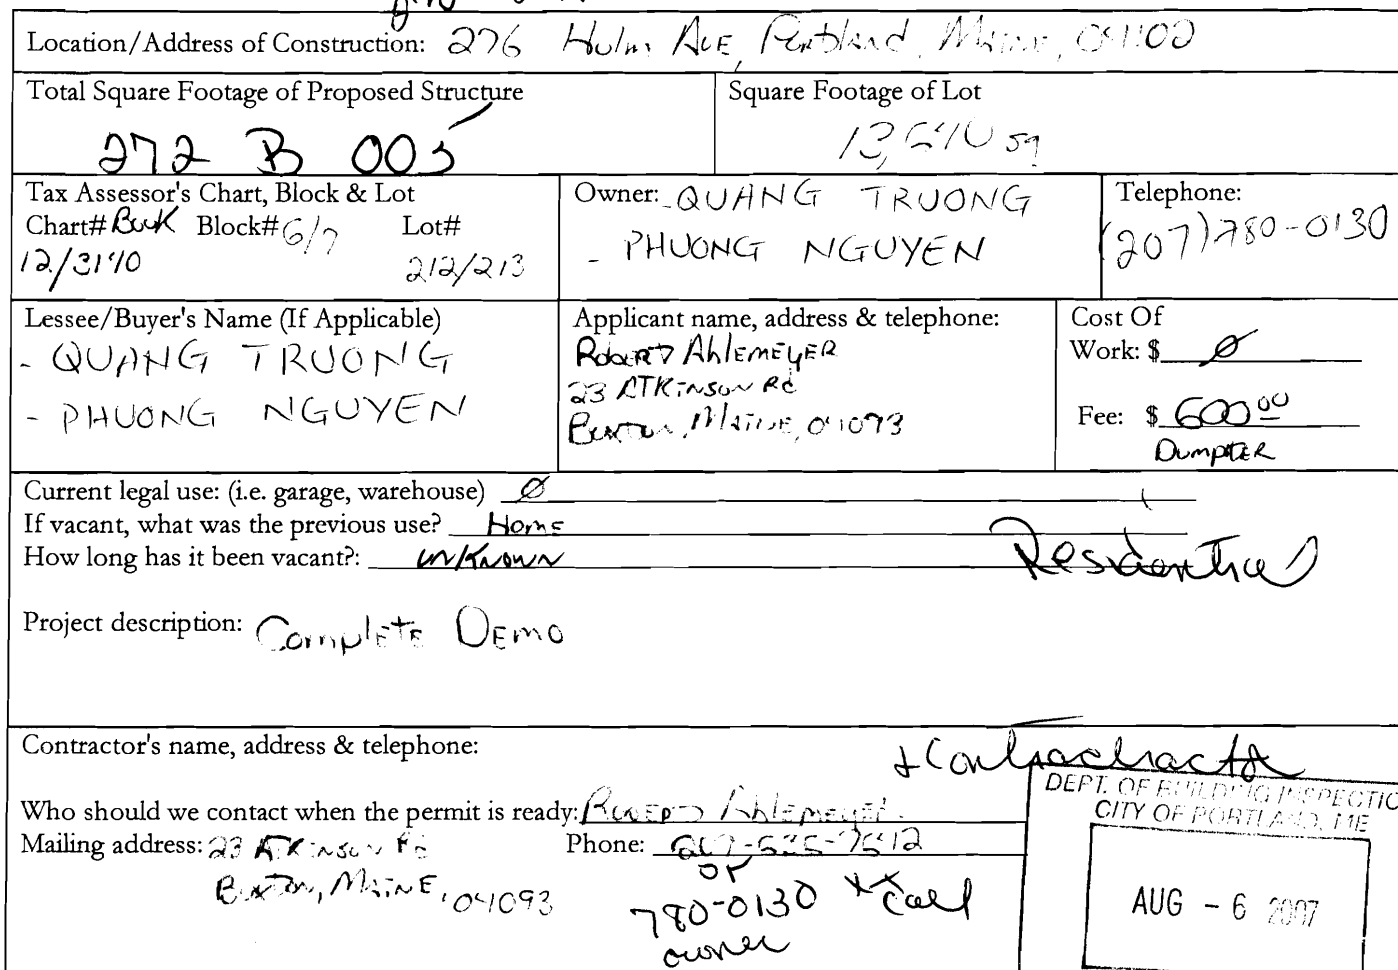 Location/Address of Construction: 276 Holm Ave, Portland, Maine, 04102
Total Square Footage of Proposed Structure
272 B 005
Square Footage of Lot
sq
Tax Assessor's Chart, Block & Lot
Chart# Book Block# 6/7 Lot#
12/3140 212/213
Owner: - QUANG TRUONG
- PHUONG NGUYEN
Telephone:
(207) 780-0130
Lessee/Buyer's Name (If Applicable)
- QUANG TRUONG
- PHUONG NGUYEN
Applicant name, address & telephone:
Robert Ahlemeyer
23 Atkinson Rd
Buxton, Maine, 04093
Cost Of
Work: $ Ø
Fee: $ 600 00
Dumpster
Current legal use: (i.e. garage, warehouse) Ø
If vacant, what was the previous use? Home
How long has it been vacant?: unknown
Residential
Project description: Complete Demo
Contractor's name, address & telephone:
Who should we contact when the permit is ready: Robert Ahlemeyer
Mailing address: 23 Atkinson Rd Phone:
Buxton, Maine, 04093
or
780-0130 ** Call
owner
DEPT. OF BUILDING INSPECTIO
CITY OF PORTLAND, ME
AUG - 6 2007